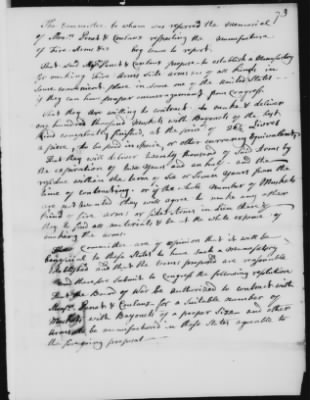 73
The Committee to whom was referred the Memorial
of Mess. Penet & Coulaux respecting the manufacture
of Fire Arms &c beg leave to report.
That said Mess Penet & Coulaux propose to establish a Manufactory
for making Fire Arms Side arms &c of all kinds in
some convenient place in some one of the United States
if they can have proper encouragement from Congress.
That they are willing to contract to make & deliver
one hundred thousand Muskets with Bayonets of the best
kind compleatly finished, at the price of Livres
a piece, to be paid in specie, or other currency equivalent
That they will deliver twenty thousand of said Arms by
the expiration of two Years and an half and the
residue within the term of six or seven Years from the
time of contracting. or if the whole number of Muskets
are not wanted they will agree to make any other
kind of fire arms or side Arms in lieu thereof
they to find all materials & be at the whole expence of
making the arms
The Committee are of opinion that it will be
beneficial to these States to have such a Manufactory
established and that the terms proposed are reasonable
and therefore submit to Congress the following resolution
That the Board of War be authorized to contract with
Mess. Penet & Coulaux for a suitable number of
Muskets with Bayonets of a proper Size and other
Arms to be manufactured in these States agreeable to
the foregoing proposal